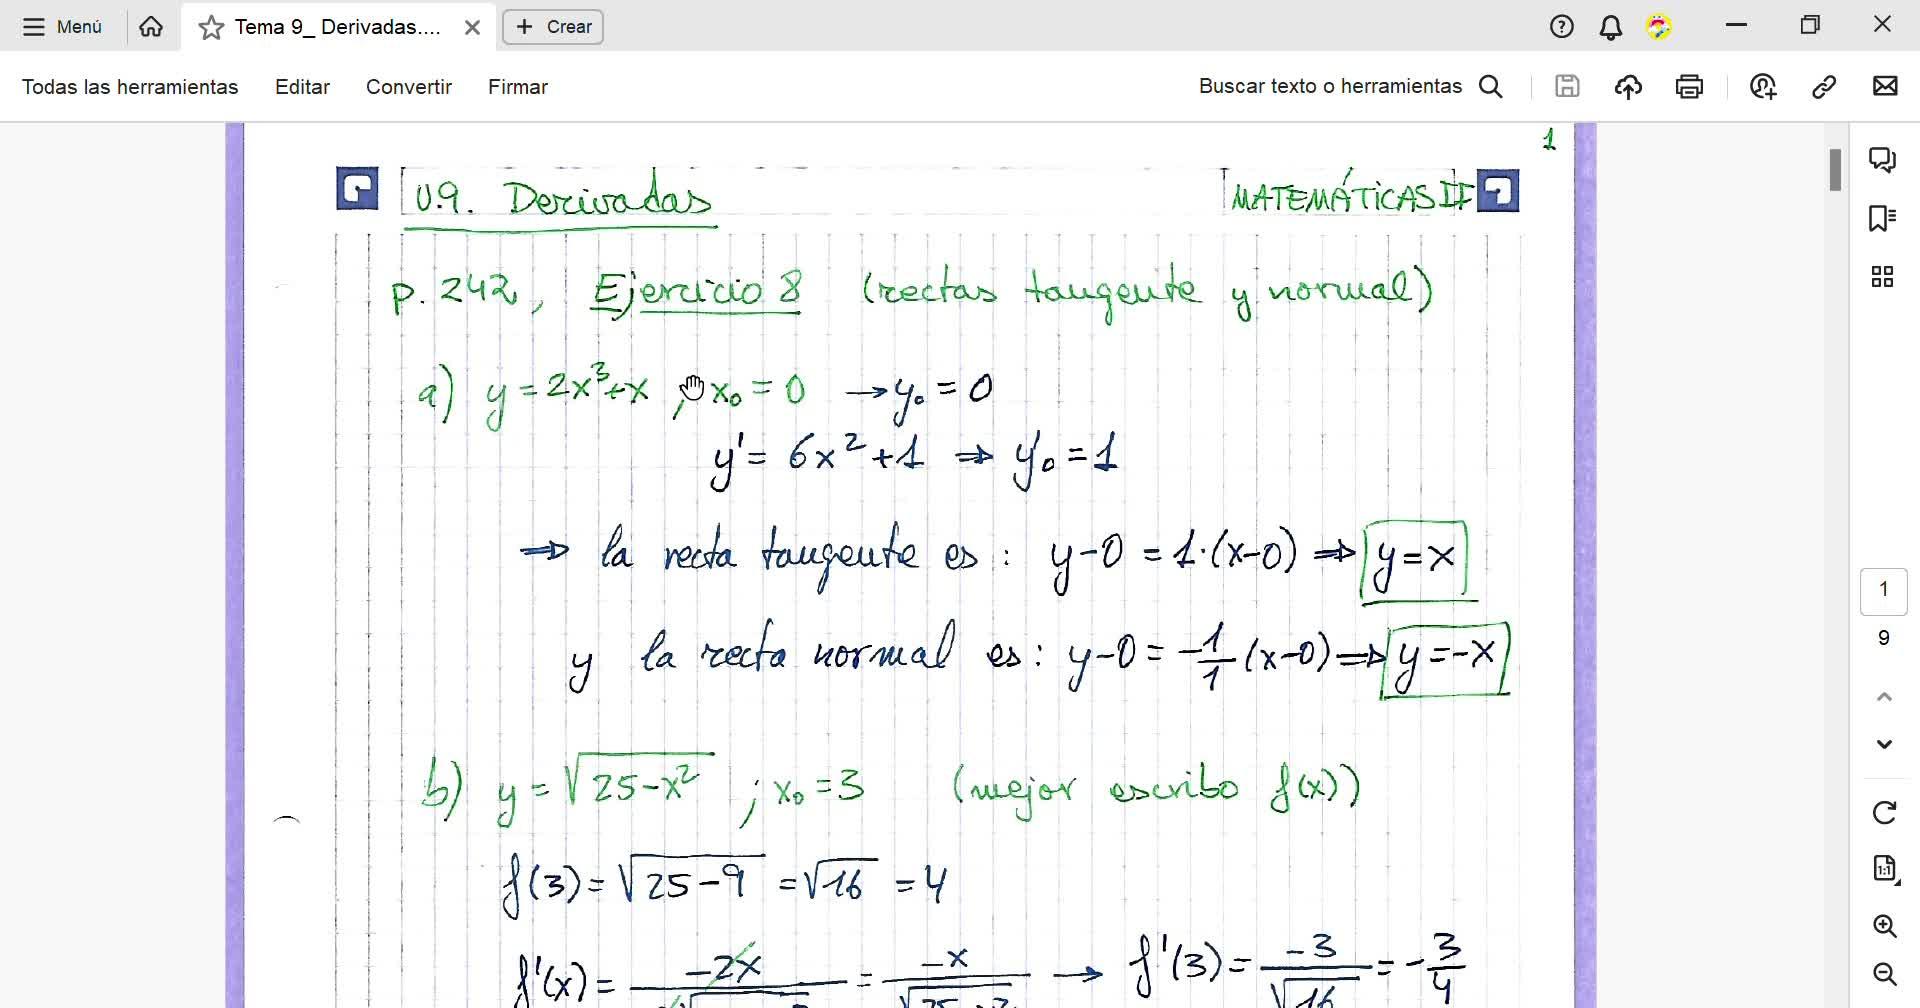 Menú
Tema 9_ Derivadas....
Crear
Todas las herramientas Editar Convertir Firmar
Buscar texto o herramientas
1
U.9. Derivadas MATEMÁTICAS II
p. 242, Ejercicio 8 (rectas tangente y normal)
a) y = 2x³+x , x₀ = 0 → y₀ = 0
y' = 6x² + 1 ⇒ y'₀ = 1
⇒ la recta tangente es : y-0 = 1·(x-0) ⇒ y = x
y la recta normal es : y-0 = -1/1 (x-0) ⇒ y = -x
b) y = √25-x² ; x₀ = 3 (mejor escribo f(x))
f(3) = √25-9 = √16 = 4
f'(x) = -2x = -x → f'(3) = -3/√16 = -3/4
1
9